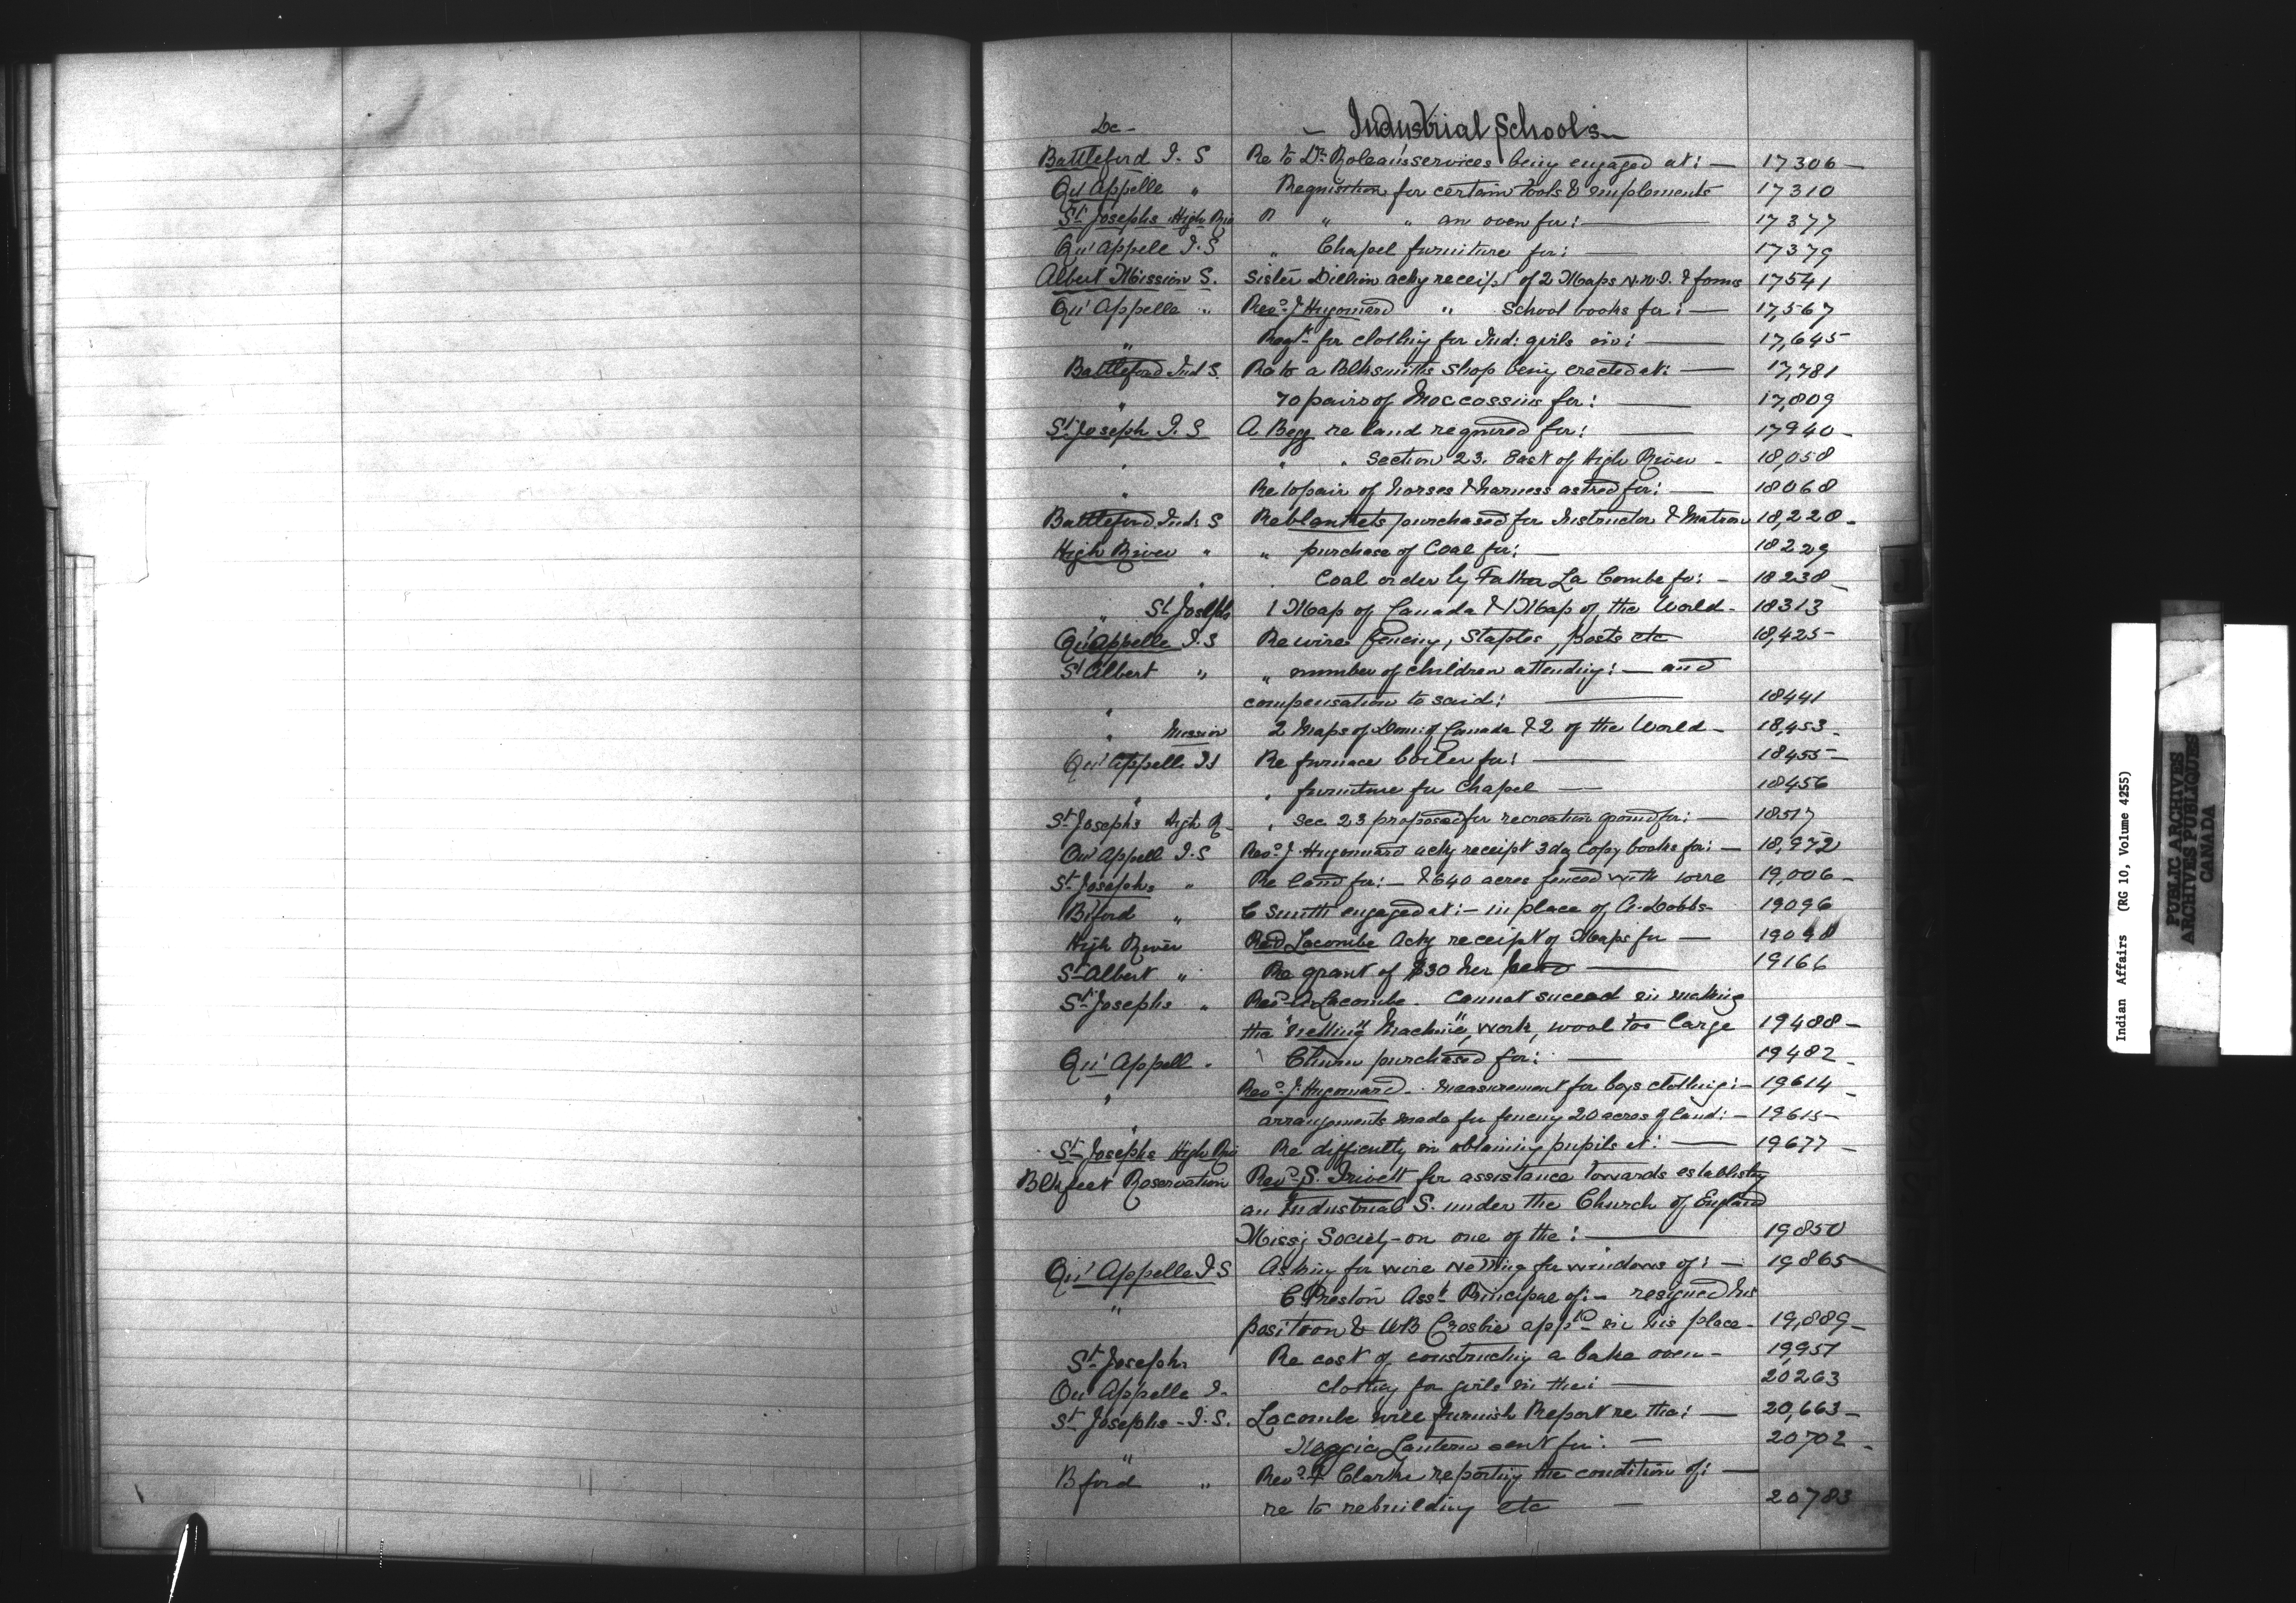 De- – Industrial Schools –
Battleford I. S Re to Dr Roleau's services being engaged at: — 17306 –
Qu'Appelle " Requisition for certain tools & implements 17310
St Josephs High Riv R " " an oven for: — 17377
Qu' Appele I. S " Chapel furniture for: — 17379
Albert Mission S. Sister Dillion ackg receipt of 2 Maps N.W.T. & forms 17541
Qu' Appelle " Revd J Hugonard " School books for: — 17,567
" Reqt for clothing for Ind: girls in: — 17,645
Battleford Ind S. Re to a Blksmiths Shop being erected at: — 17,781
" 70 pairs of Moccossins for: — 17,809
St Joseph I. S A Begg re land required for: — 17940 –
" " " Section 23. East of High River – 18,058
" Re to pair of horses & harness asked for: — 18068
Battleford Ind: S Re blankets purchased for Instructor & Matron 18,228 –
High River " " purchase of Coal for: — 18229
" " Coal order by Father La Combe for: – 18238 –
" St Josephs 1 Map of Canada & 1 Map of the World – 18313
Qu'Appelle I. S Re wire fencing, Staples, posts etc 18,425 –
St Albert " " number of children attending: — and
" compensation to said: — 18441
" Mission 2 Maps of Dom: of Canada & 2 of the World – 18,453 –
Qu' Appelle IS Re furnace boiler for: — 18455 –
" " furniture for Chapel — 18456
St Josephs High R – " Sec 23 proposed for recreation ground for: — 18517
Qu' Appell I. S Revd J. Hugonnard ackg receipt 3 dz Copy books for: — 18,972
St Josephs " Re land for: – & 640 acres fenced with wire 19,006 –
Bford " C Smith engaged at: – in place of A. Dobbs – 19096
High River Revd Lacombe Ackg receipt of Maps for — 19098
St Albert " Re grant of $30 per head — 19166
St Josephs " Revd A Lacombe. Cannot suceed in making
the "netting Machine" work, wool too large 19488 –
Qu' Appell " Churn purchased for: — 19482 –
" Revd J. Hugonard – measurement for boys clothing: – 19614 –
" arrangements made for fencing 20 acres of land: – 19615 –
St Josephs High Riv Re difficulty in obtaining pupils at: — 19677 –
Blkfeet Reservation Revd S. Trivett for assistance towards establishg
an Industrial S. under the Church of England
Missy Society – on one of the: — 19850
Qu' Appelle I S Asking for wire netting for windows of: — 19865 –
" C Preston Asst Principal of: – resigned his
position & WB Crosbie appd in his place – 19,889 –
St Josephs Re cost of constructing a bake oven – 19,957
Qu' Appelle I. clothing for girls in the: — 20263
St Josephs – I. S. Lacombe will furnish Report re the: — 20,663 –
" Maggic Lantern sent for: — 20702 –
Bford " Revd T Clarke reporting the condition of: —
re to rebuilding etc — 20783
Indian Affairs (RG 10, Volume 4255)
PUBLIC ARCHIVES
ARCHIVES PUBLIQUES
CANADA